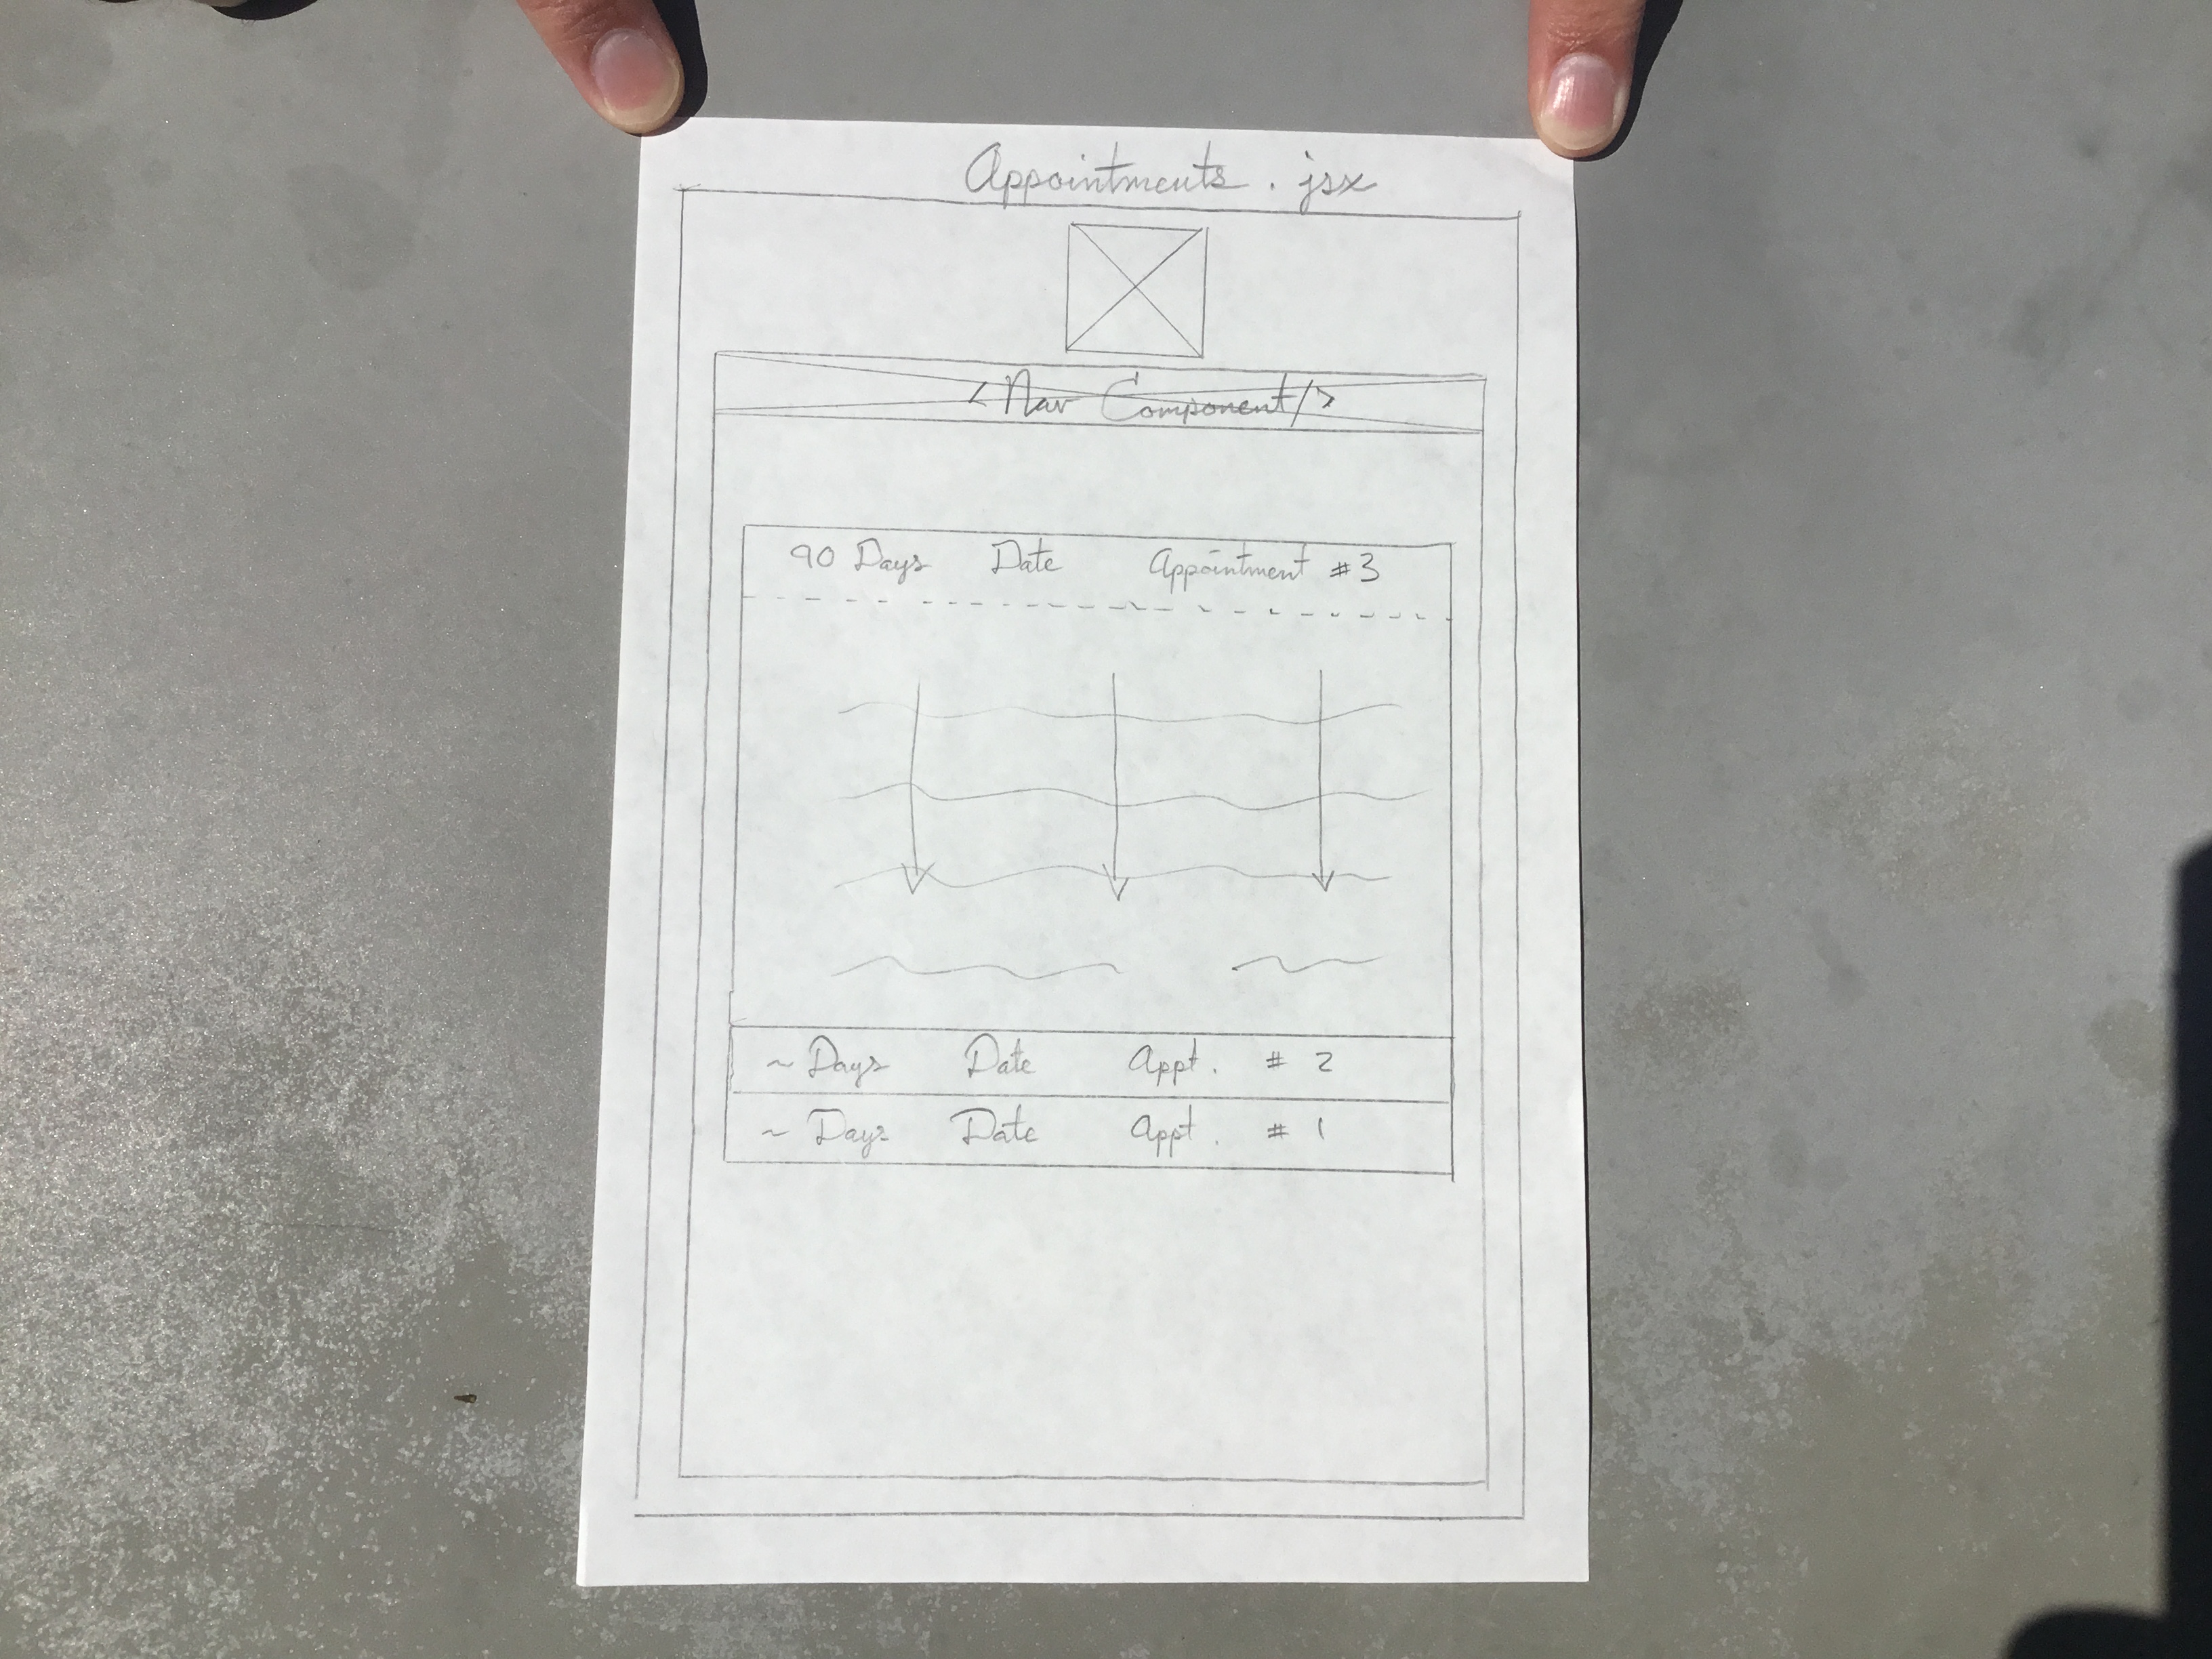 Appointments.jsx
<Nav Component/>
90 Days Date Appointment #3
~ Days Date Appt. # 2
~ Days Date Appt. # 1